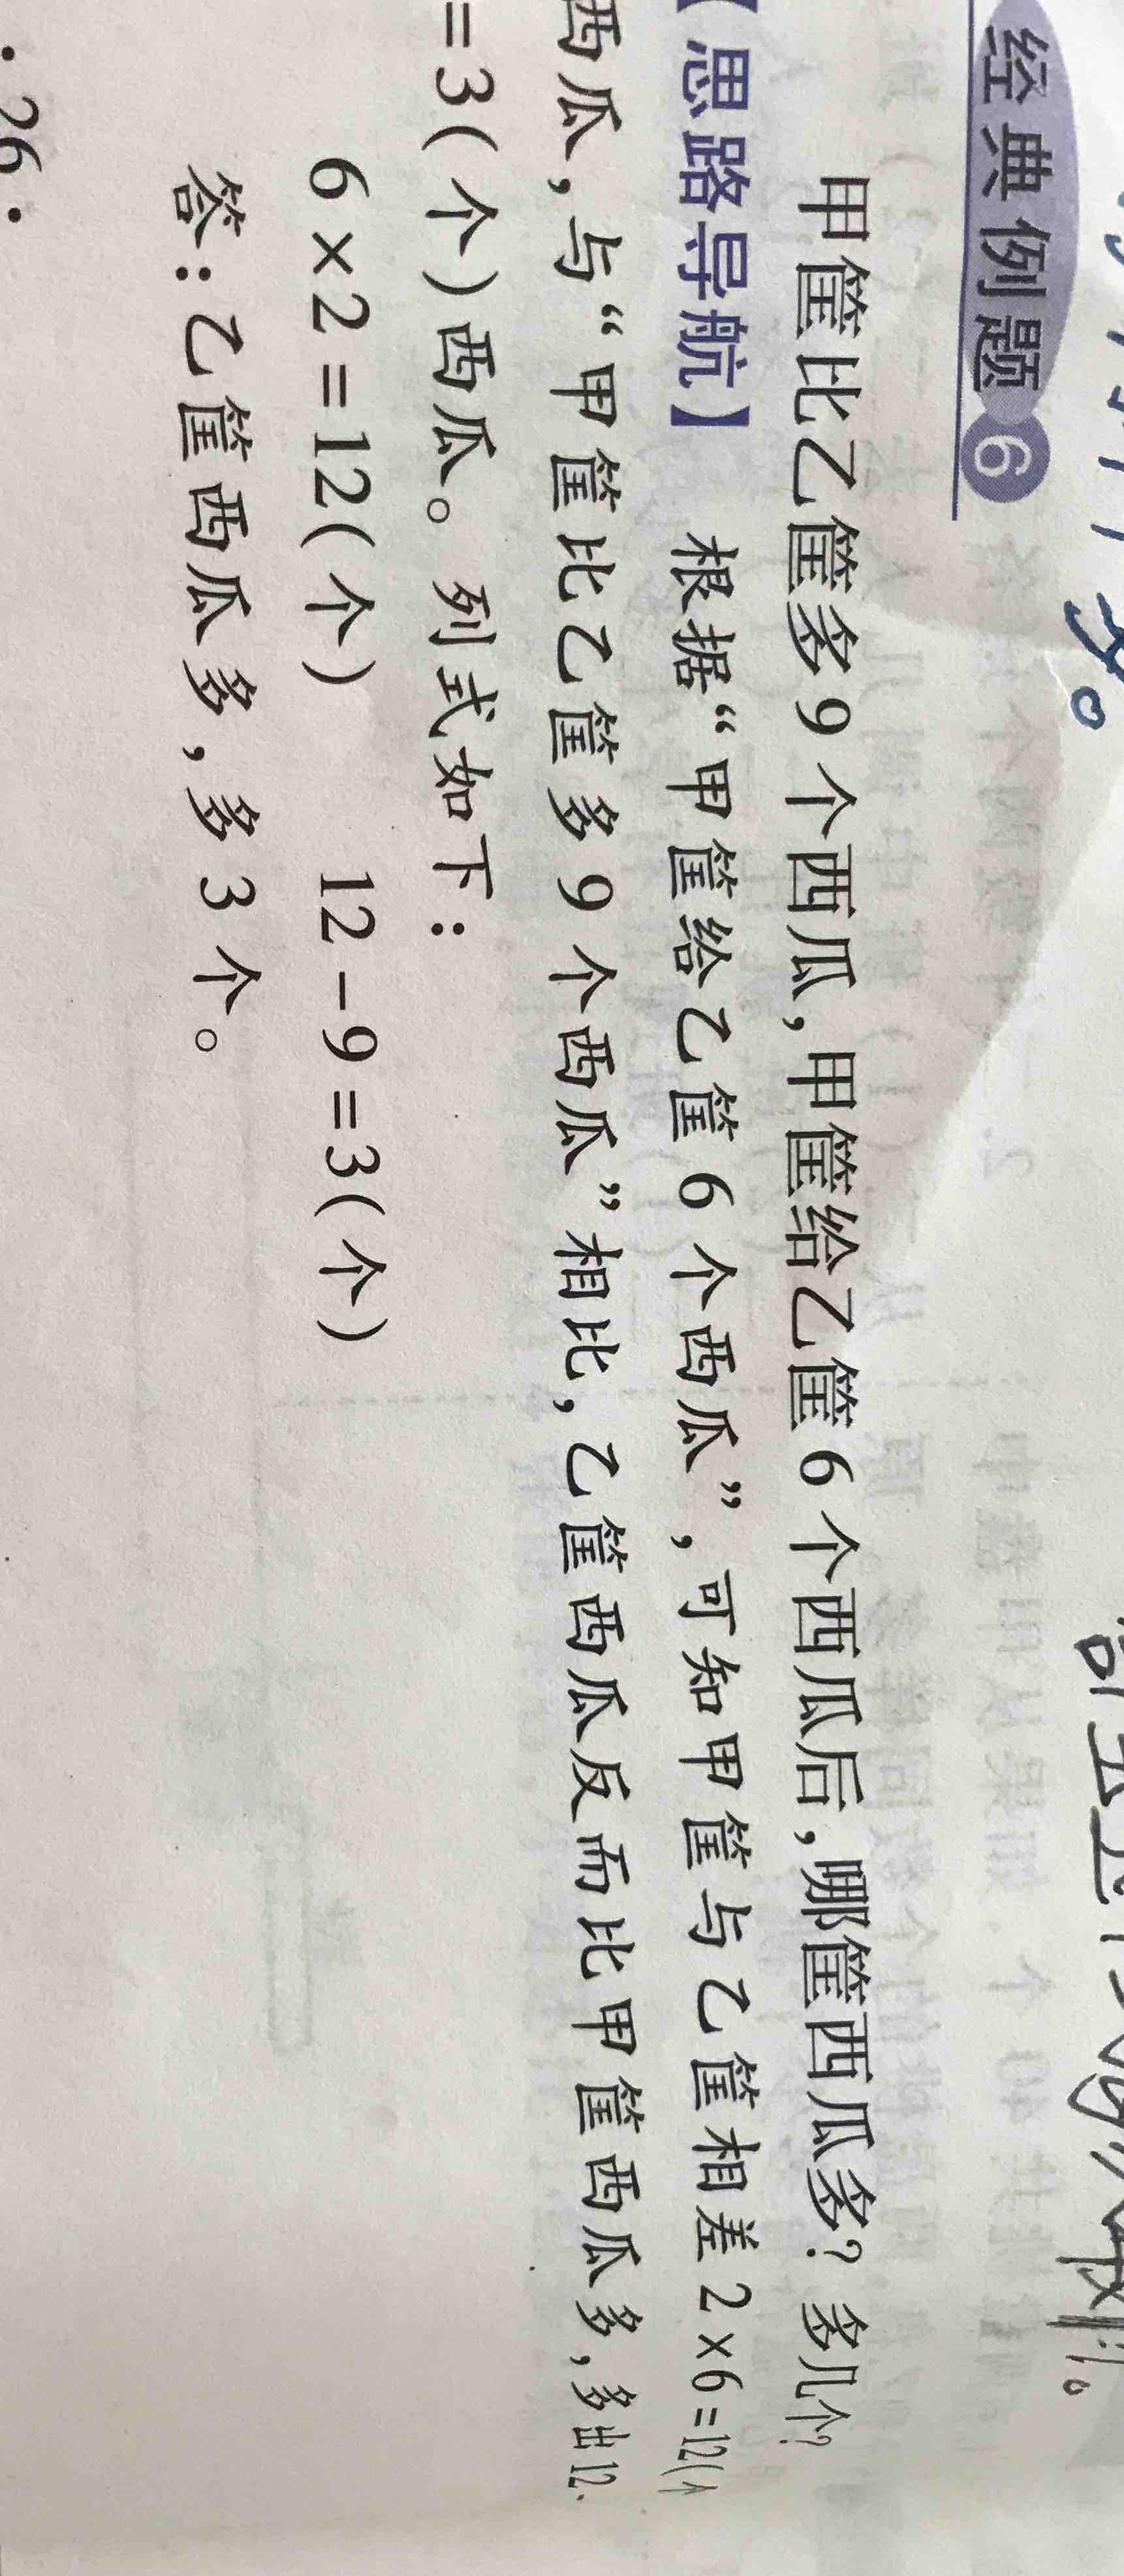 经典例题6
甲筐比乙筐多9个西瓜,甲筐给乙筐6个西瓜后,哪筐西瓜多?多几个?
【思路导航】 根据“甲筐给乙筐6个西瓜”,可知甲筐与乙筐相差2×6=12(个
西瓜,与“甲筐比乙筐多9个西瓜”相比,乙筐西瓜反而比甲筐西瓜多,多出12-
=3(个)西瓜。列式如下:
6×2=12(个) 12-9=3(个)
答:乙筐西瓜多,多3个。
·26·